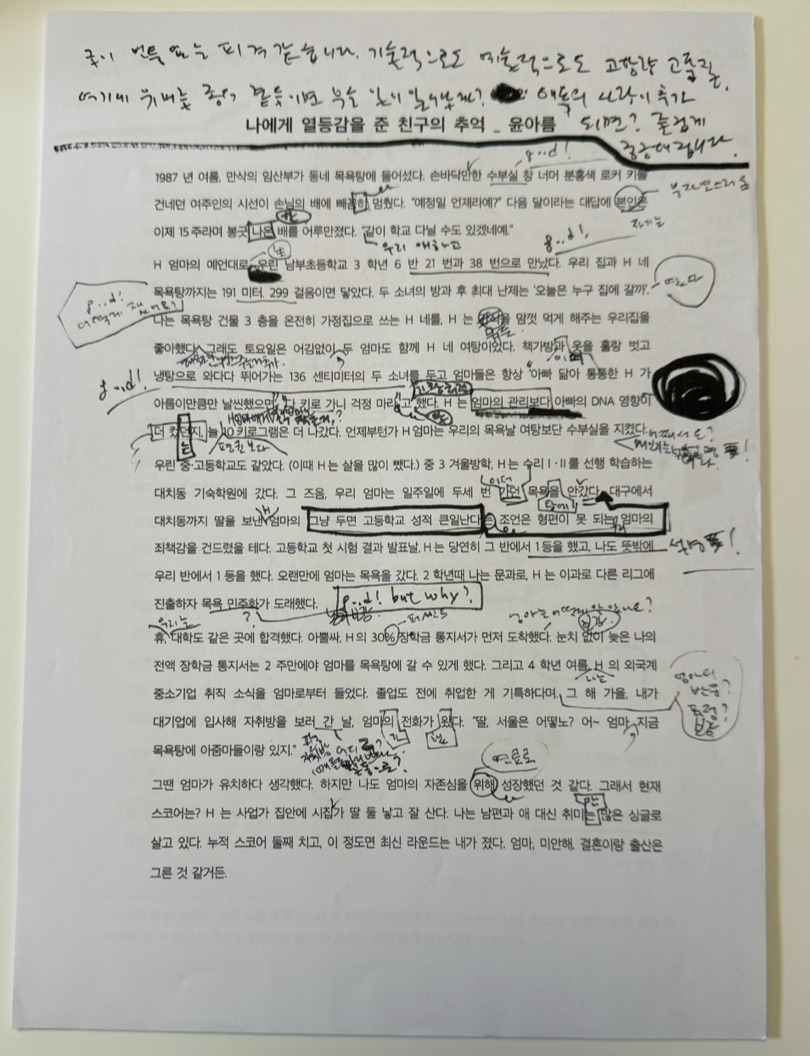 굳이 번득 없는 피겨 같습니다. 기술적으로도 예술적으로도 고창량 고품질.
여기에 뒤버놓 종이 접듯이면 무슨 일이 일어날까? 애독의 사랑이 추가
나에게 열등감을 준 친구의 추억 _ 윤아름 되면? 즐겁게
궁금해집니다.
good!
1987 년 여름, 만삭의 임산부가 동네 목욕탕에 들어섰다. 손바닥만한 수부실 창 너머 분홍색 로커 키를
건네던 여주인의 시선이 손님의 배에 빼꼼히 멈췄다. "예정일 언제라예?" 다음 달이라는 대답에 본인은 부자연스러움
자기는
이제 15 주라며 봉긋 나온 배를 어루만졌다. "같이 학교 다닐 수도 있겠네예."
우리 애하고
good!
H 엄마의 예언대로 우린 남부초등학교 3 학년 6 반 21 번과 38 번으로 만났다. 우리 집과 H 네
는
목욕탕까지는 191 미터. 299 걸음이면 닿았다. 두 소녀의 방과 후 최대 난제는 '오늘은 누구 집에 갈까'. 였다
good!
어떻게 쟀어요?
나는 목욕탕 건물 3 층을 온전히 가정집으로 쓰는 H 네를, H 는 맘껏 먹게 해주는 우리집을
좋아했다. 그래도 토요일은 어김없이 두 엄마도 함께 H 네 여탕이었다. 책가방과 옷을 훌랑 벗고
good!
냉탕으로 와다다 뛰어가는 136 센티미터의 두 소녀를 두고 엄마들은 항상 '아빠 닮아 통통한 H 가
아름이만큼만 날씬했으면', '다 키로 가니 걱정 마라'고 했다. H 는 엄마의 관리보다 아빠의 DNA 영향이
더 컸던지, 늘 10 키로그램은 더 나갔다. 언제부턴가 H 엄마는 우리의 목욕날 여탕보단 수부실을 지켰다.
우린 중·고등학교도 같았다. (이때 H 는 살을 많이 뺐다.) 중 3 겨울방학, H 는 수리 I·II 를 선행 학습하는
대치동 기숙학원에 갔다. 그 즈음, 우리 엄마는 일주일에 두세 번 가던 목욕을 안갔다. 대구에서
대치동까지 딸을 보낸 H 엄마의 그냥 두면 고등학교 성적 큰일난다는 조언은 형편이 못 되는 엄마의
죄책감을 건드렸을 테다. 고등학교 첫 시험 결과 발표날, H 는 당연히 그 반에서 1 등을 했고, 나도 뜻밖에 설명 要!
우리 반에서 1 등을 했다. 오랜만에 엄마는 목욕을 갔다. 2 학년때 나는 문과로, H 는 이과로 다른 리그에
진출하자 목욕 민주화가 도래했다. good! but why?
?
우리는
퍼센트
휴, 대학도 같은 곳에 합격했다. 아뿔싸, H 의 30% 장학금 통지서가 먼저 도착했다. 눈치 없이 늦은 나의
전액 장학금 통지서는 2 주만에야 엄마를 목욕탕에 갈 수 있게 했다. 그리고 4 학년 여름, H 의 외국계
나는
중소기업 취직 소식을 엄마로부터 들었다. 졸업도 전에 취업한 게 기특하다며, 그 해 가을, 내가
엄마의
반응?
표정?
대기업에 입사해 자취방을 보러 간 날, 엄마의 전화가 왔다. "딸, 서울은 어떻노? 어~ 엄마, 지금
목욕탕에 아줌마들이랑 있지."
연료로
그땐 엄마가 유치하다 생각했다. 하지만 나도 엄마의 자존심을 위해 성장했던 것 같다. 그래서 현재
스코어는? H 는 사업가 집안에 시집가 딸 둘 낳고 잘 산다. 나는 남편과 애 대신 취미는 많은 싱글로
만
살고 있다. 누적 스코어 둘째 치고, 이 정도면 최신 라운드는 내가 졌다. 엄마, 미안해. 결혼이랑 출산은
그른 것 같거든.